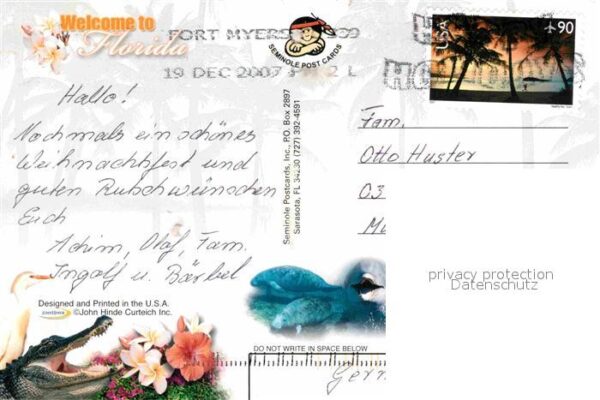 Welcome to
Florida
FORT MYERS 339
19 DEC 2007 2 L
SEMINOLE POST CARDS
USA
90
Hallo!
Nochmals ein schönes
Weihnachtsfest und
guten Rutsch wünschen
Euch
Achim, Olaf, Fam.
Ingolf u. Bärbel
Designed and Printed in the U.S.A.
©John Hinde Curteich Inc.
Seminole Postcards, Inc., P.O. Box 2897
Sarasota, FL 34230 (727) 392-4591
Fam.
Otto Huster
03
privacy protection
Datenschutz
DO NOT WRITE IN SPACE BELOW